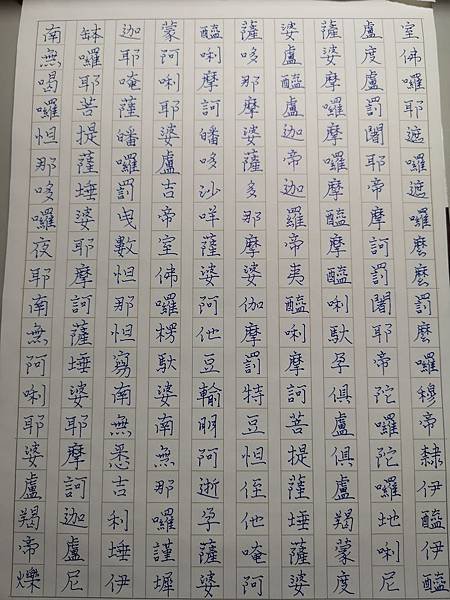 南無喝囉怛那哆囉夜耶南無阿唎耶婆盧羯帝爍
缽囉耶菩提薩埵婆耶摩訶薩埵婆耶摩訶迦盧尼
迦耶唵薩皤囉罰曳數怛那怛寫南無悉吉利埵伊
蒙阿唎耶婆盧吉帝室佛囉楞馱婆南無那囉謹墀
醯唎摩訶皤哆沙咩薩婆阿他豆輸朋阿逝孕薩婆
薩哆那摩婆薩多那摩婆伽摩罰特豆怛侄他唵阿
婆盧醯盧迦帝迦羅帝夷醯唎摩訶菩提薩埵薩婆
薩婆摩囉摩囉摩醯摩醯唎馱孕俱盧俱盧羯蒙度
盧度盧罰闍耶帝摩訶罰闍耶帝陀囉陀囉地唎尼
室佛囉耶遮囉遮囉麼麼罰麼囉穆帝隸伊醯伊醯